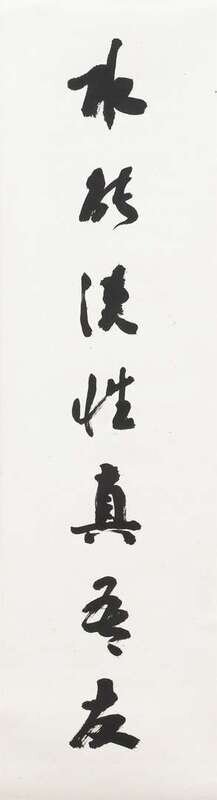 水能淡性真吾友